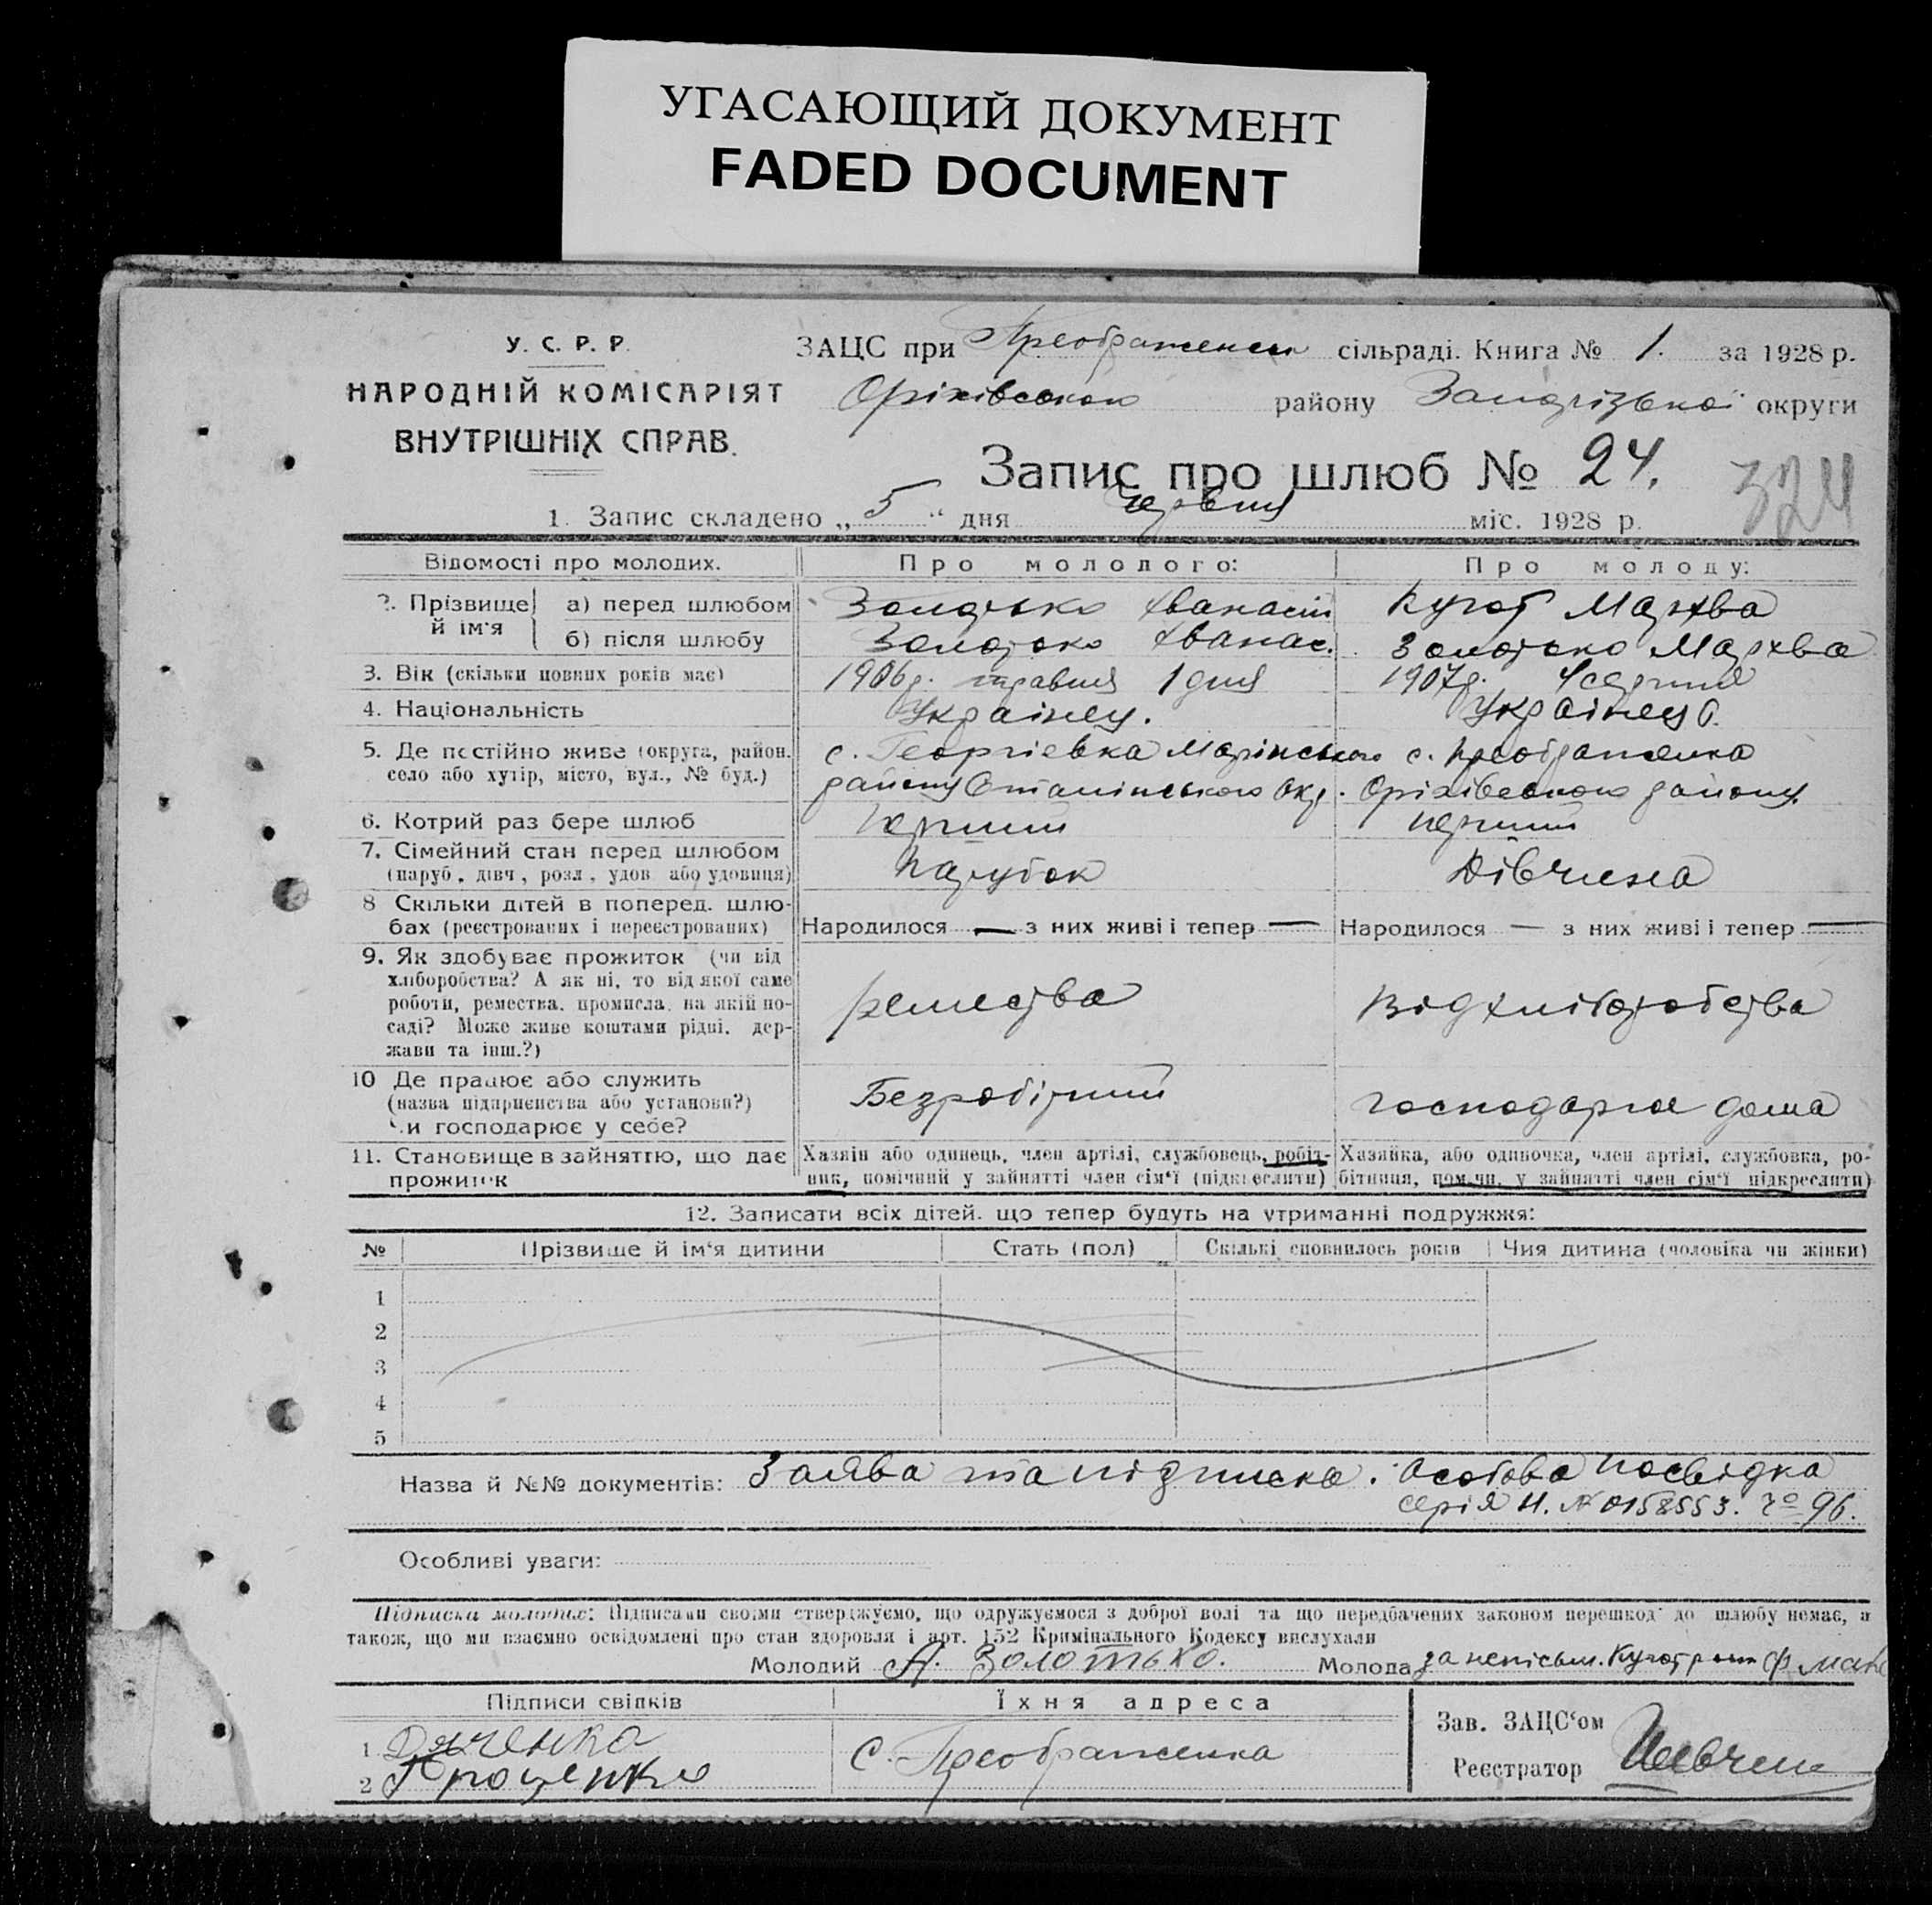 УГАСАЮЩИЙ ДОКУМЕНТ
FADED DOCUMENT
У. С. Р. Р.
НАРОДНІЙ КОМІСАРІЯТ
ВНУТРІШНІХ СПРАВ.
ЗАЦС при Преображенськ сільраді. Книга № 1. за 1928 р.
Оріхівського району Запорізької округи
Запис про шлюб № 24.
324
1. Запис складено „ 5 " дня Червня міс. 1928 р.
Відомості про молодих. Про молодого: Про молоду:
2. Прізвище й ім'я а) перед шлюбом Золотько Хванасій Кугот Мархва
б) після шлюбу Золотько Хванас. Золотько Мархва
3. Вік (скільки повних років має) 1906р. травня 1 дня 1907р. 4 серпня
4. Національність Українец. Українец
5. Де постійно живе (округа, район. с. Георгіевка Марінського с. Преображенка
село або хутір, місто, вул., № буд.) району Сталінського Окр. Оріхівського району.
6. Котрий раз бере шлюб перший перший
7. Сімейний стан перед шлюбом Парубок Дівчина
(паруб., дівч., розл., удов. або удовиця)
8 Скільки дітей в поперед. шлю-
бах (реєстрованих і нереєстрованих) Народилося — з них живі і тепер — Народилося — з них живі і тепер —
9. Як здобуває прожиток (чи від
хліборобства? А як ні, то від якої саме
роботи, ремества, промисла, на якій по- ремества Від хліборобства
саді? Може живе коштами рідні, дер-
жави та інш.?)
10 Де працює або служить Безробітний господарює дома
(назва підприєнства або установи?)
Чи господарює у себе?
11. Становище в зайняттю, що дає Хазяїн або одинець, член артілі, службовець, робіт- Хазяйка, або одиночка, член артілі, службовка, ро-
прожиток ник, помічний у зайнятті член сім'ї (підкреслити) бітниця, помічн. у зайнятті член сім'ї підкреслити)
12. Записати всіх дітей, що тепер будуть на утриманні подружжя:
№ Прізвише й ім'я дитини Стать (пол) Скількі сповнилось років Чия дитина (чоловіка чи жінки)
1
2
3
4
5
Назва й №№ документів: Заява та підписка. Особова посвідка
серія Н. № 0158553. 96.
Особливі уваги:
Підписка молодих: Підписами своїми стверджуємо, що одружуємося з доброї волі та що передбачених законом перешкод до шлюбу немає, а
також, що ми взаємно освідомлені про стан здоровля і арт. 152 Кримінального Кодексу вислухали
Молодий А. Золотько. Молода за неписьм.
Підписи свідків Їхня адреса
1 Дяченко с. Преображенка
2 Проценко
Зав. ЗАЦС'ом
Реєстратор